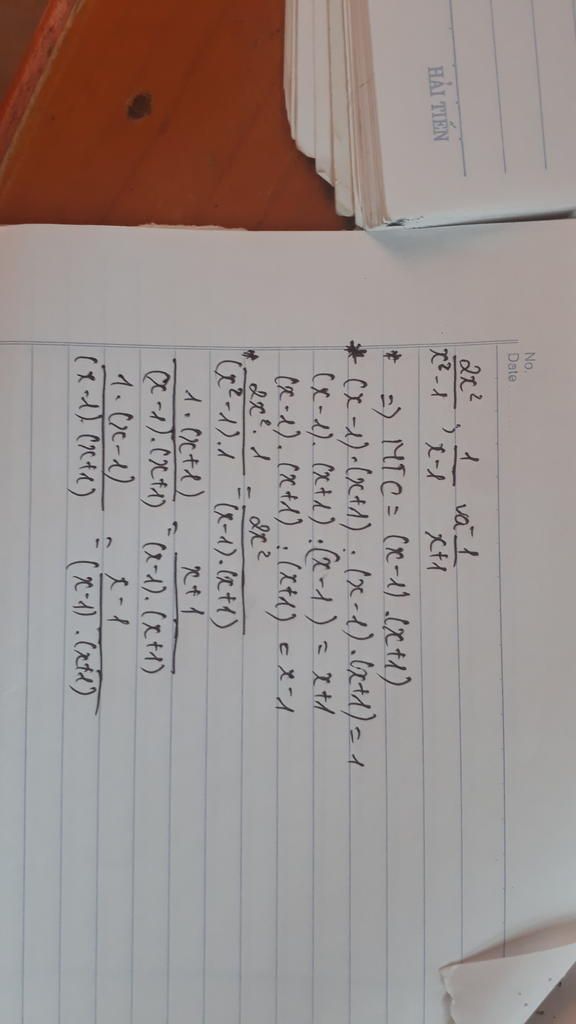 HẢI TIẾN
No.
Date
2x²/x²-1, 1/x-1 và 1/x+1
* => MTC = (x-1).(x+1)
* (x-1).(x+1) : (x-1).(x+1) = 1
(x-1).(x+1) : (x-1) = x+1
(x-1).(x+1) : (x+1) = x-1
* 2x².1/(x²-1).1 = 2x²/(x-1).(x+1)
1.(x+1)/(x-1).(x+1) = x+1/(x-1).(x+1)
1.(x-1)/(x-1).(x+1) = x-1/(x-1).(x+1)